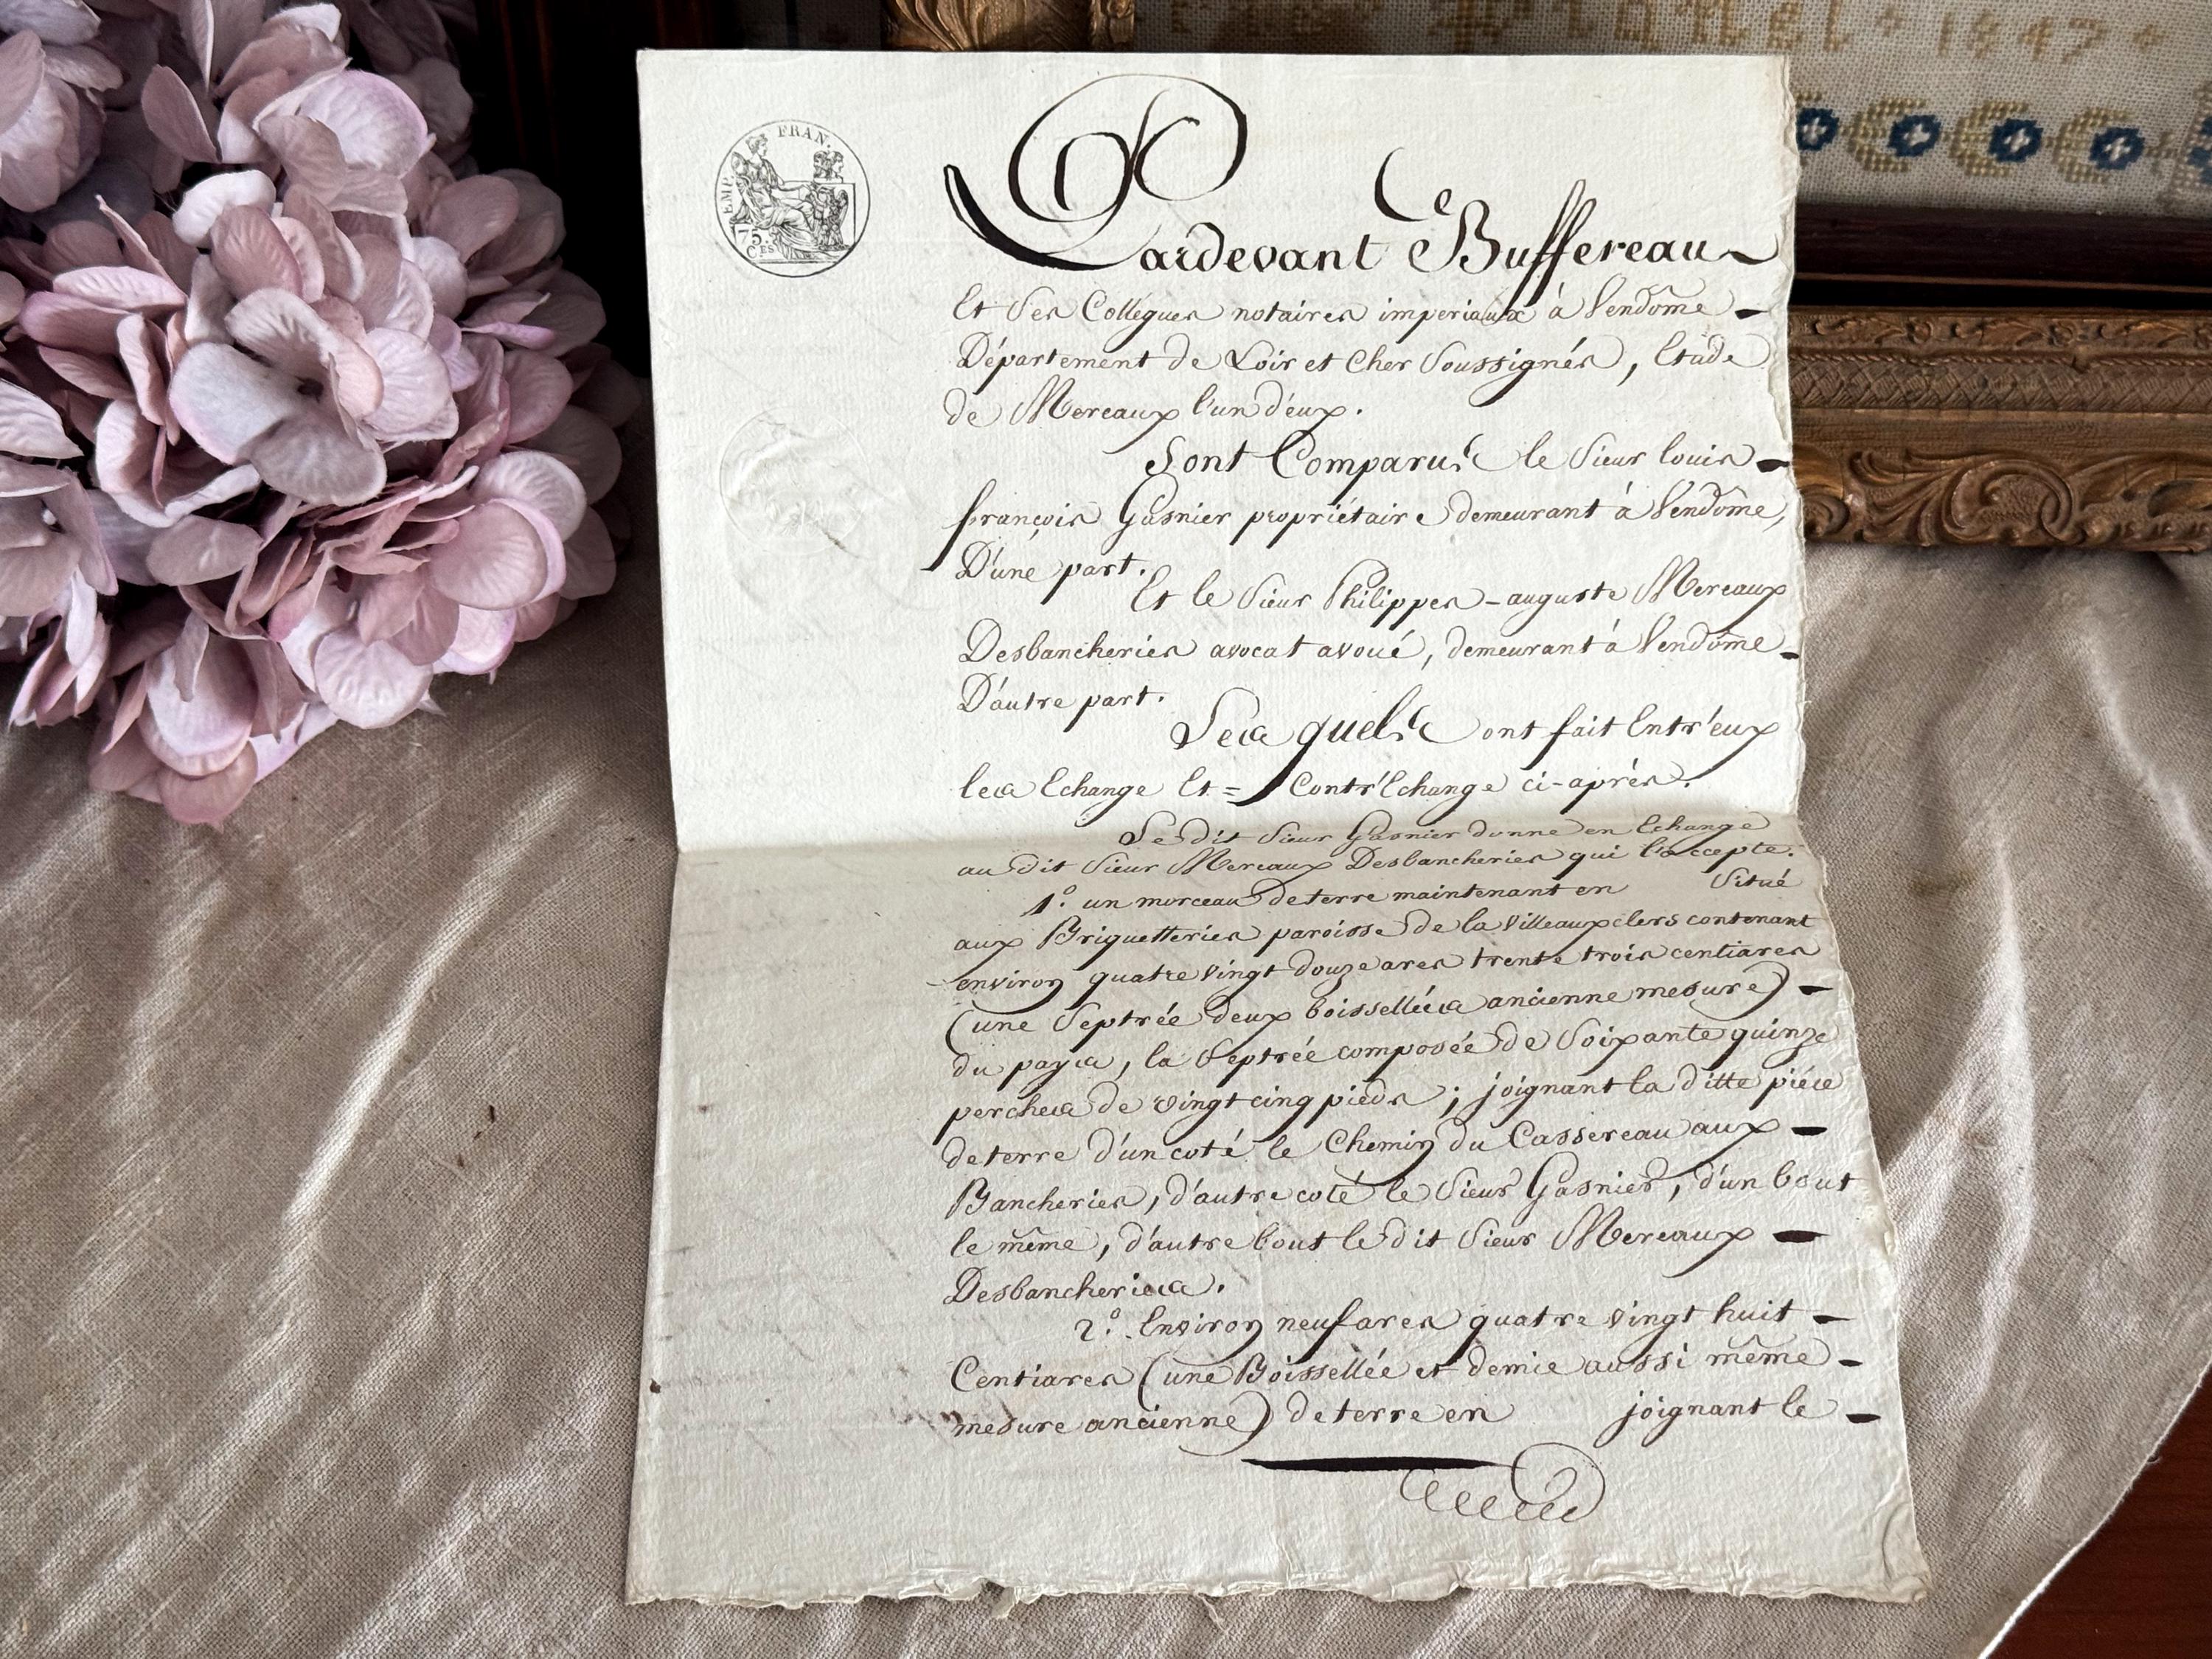 1847
EMP. FRAN.
75.
CES
Pardevant Buffereau
Et Ses Collégues notaires imperiaux à Vendôme
Département de Loir et Cher Soussignés, Etude
de Mereaux l'un d'eux.
Sont Comparus le Sieur louis
françois Gasnier propriétaire demeurant à Vendôme,
D'une part.
Et le Sieur Philippes-auguste Mereaux
Desbancheries avocat avoué, demeurant à Vendôme
D'autre part.
Lesquels ont fait Entr'eux
les Echange Et = Contr'Echange ci-après.
Le dit Sieur Gasnier donne en Echange
au dit Sieur Mereaux Desbancheries qui l'accepte.
1.° un morceau de terre maintenant en Situé
aux Briquetteries paroisse de la Villeauxclers contenant
environ quatre vingt douze ares trente trois centiares
(une Septrée deux boissellées ancienne mesure)
du pays, la Septrée composée de Soixante quinze
perches de vingt cinq pieds; joignant la ditte piéce
de terre d'un coté le Chemin du Cassereau aux
Bancheries, d'autre coté le Sieur Gasnier, d'un bout
le même, d'autre bout le dit Sieur Mereaux
Desbancheries.
2.° Environ neuf ares quatre vingt huit
Centiares (une Boissellée et demie aussi même
mesure ancienne) de terre en joignant le